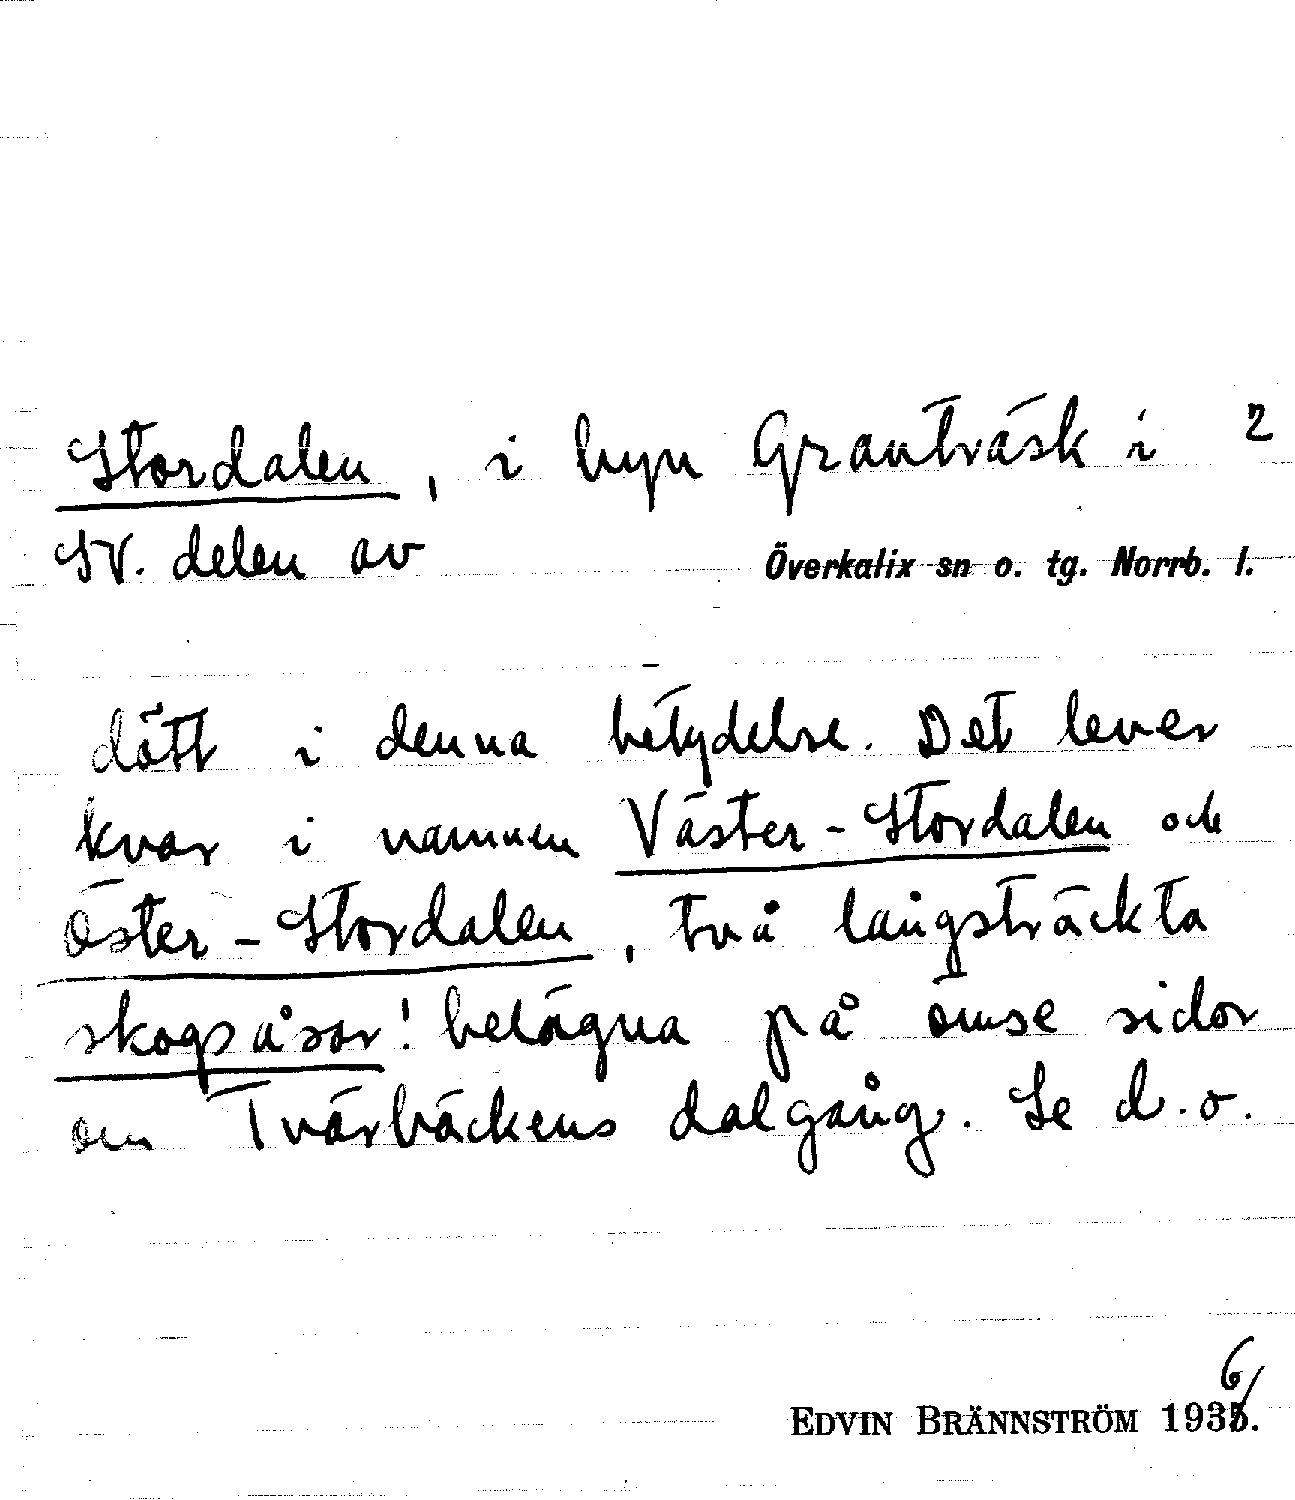 Stordalen, i byn Granträsk i 2
SV. delen av Överkalix sn o. tg. Norrb. l.
dött i denna betydelse. Det lever
kvar i namnen Väster-Stordalen och
Öster-Stordalen, två långsträckta
skogsåsar! belägna på ömse sidor
om Tvärbäckens dalgång. Se d.o.
6
EDVIN BRÄNNSTRÖM 1935.